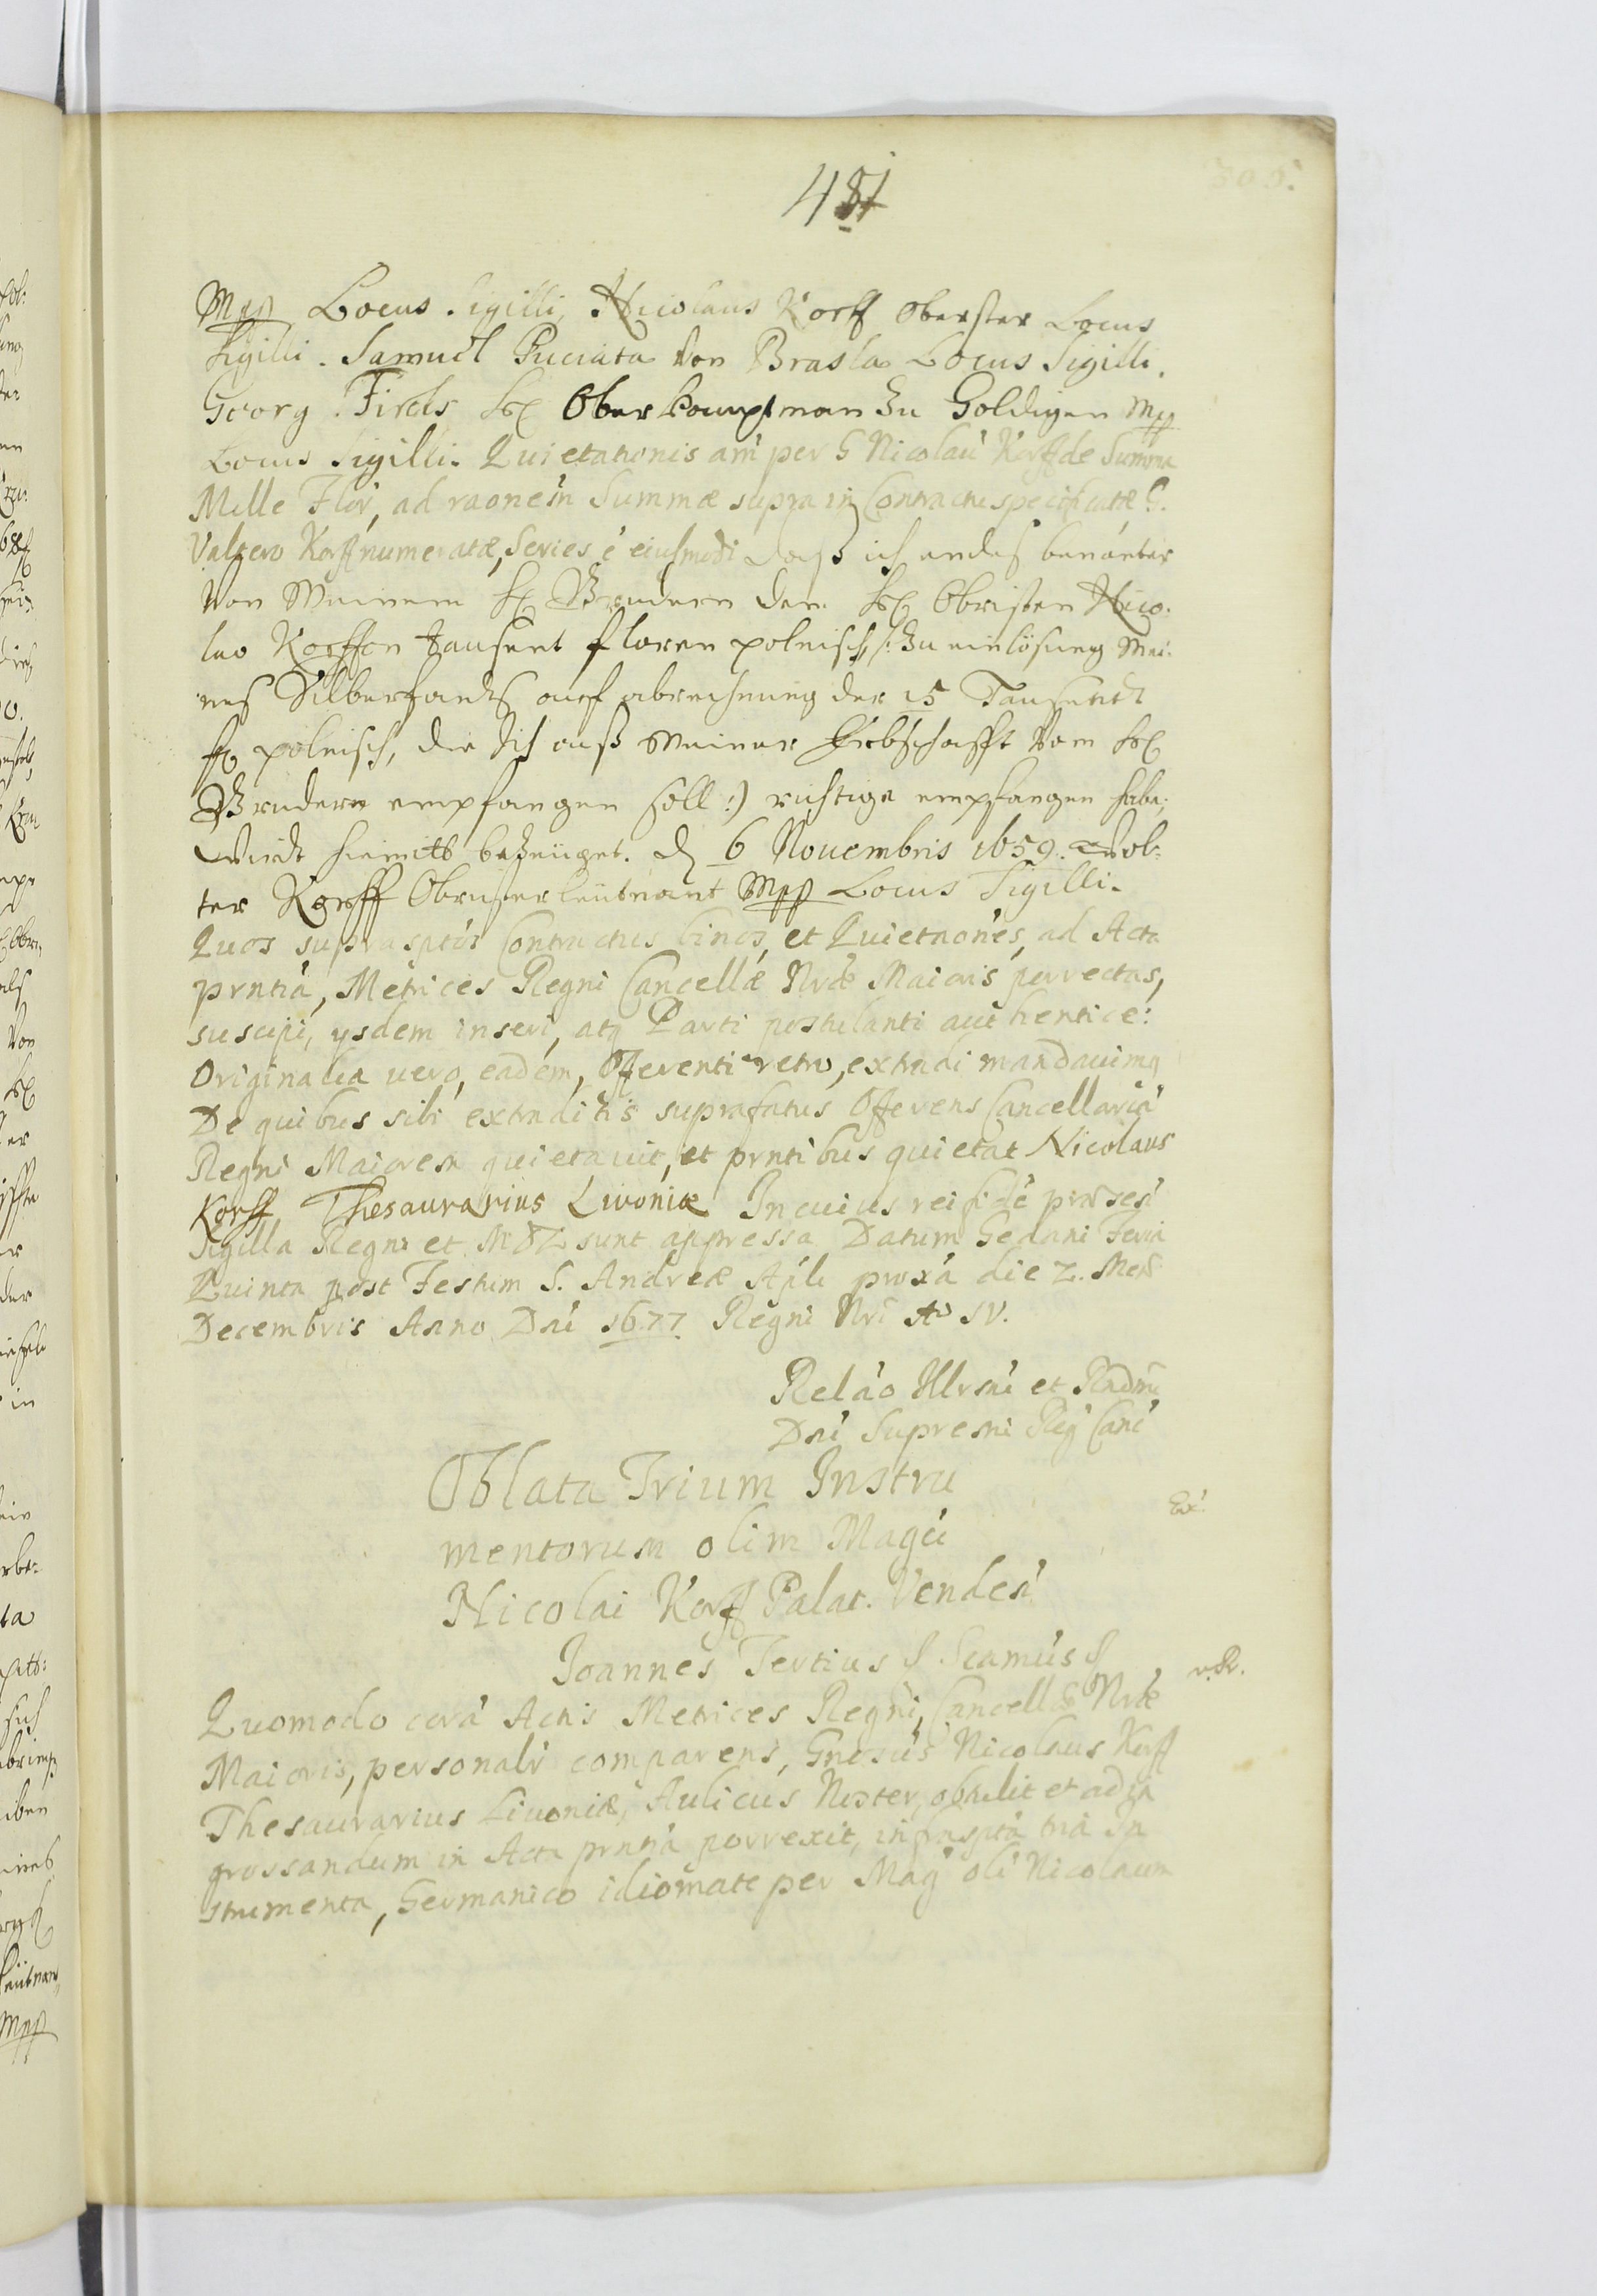 481
305.
Mpp Locus Sigilli, Nicolaus Korff Oberster Locus
Sigilli. Samuel Puciata von Brasla Locus Sigilli.
Georg Fircks Ober Hauptman zu Goldigen Mpp
Locus Sigilli. Quietationis aut per G Nicolau Korff de Summa
Mille Flor, ad raonem Summæ supra in Contractu specificatæ G.
Valtero Korff numeratæ, Series é eiusmodi daß ich endes benanter
von Meinem H Brudern den H Obristen Nico-
lao Korffen tausent floren polnisch, /: zu einlösung Mei-
nes Silberpfandts auf abrechnung der 15 Tausendt
fl polnisch, die Ich auß Meiner Erbschafft vom H
Brudern empfangen soll :) richtige empfangen habe,
wirdt hiemitt bezeüget. d 6 Nouembris 1659. Wol-
ter Korff Obrister leütnant Mpp Locus Sigilli.
Quos suprasptos Contractus binos, et Quietaones, ad Acta
prntia, Metrices Regni Cancellæ Nræ Maioris porrectas,
suscipi, ysdem inseri, atq Parti postulanti authentice:
Originalia vero, eadem, Offerenti retro, extradi mandauimq
De quibus sibi extraditis suprafatus Offerens Cancellariā
Regni Maiorem quietauit, et prntibus quietat Nicolaus
Korff Thesaurarius Livoniæ In cuius rei fidé præsen
Sigilla Regni et MDL sunt appressa Datum Gedani Feria
Quinta post Festum S. Andreæ Apli proxa die 2. Men
Decembris Anno Dni 1677 Regni Nri Ao IV.
Relao Illrsmi et Rndmi
Dni Supremi Reg Canc
Oblata Trium Instru
mentorum olim Magci
Nicolai Korff Palat. Venden
Ex.
Joannes Tertius S Scamus S
v. R.
Quomodo corá Actis Metrices Regni, Cancellæ Nræ
Maioris, personalr comparens, Gnosus Nicolaus Korff
Thesaurarius Livoniæ, Aulicus Noster, obtulit et ad in
grossandum in Acta prntia porrexit, infraspta tria In
strumenta, Germanico idiomate per Mag oli Nicolaum